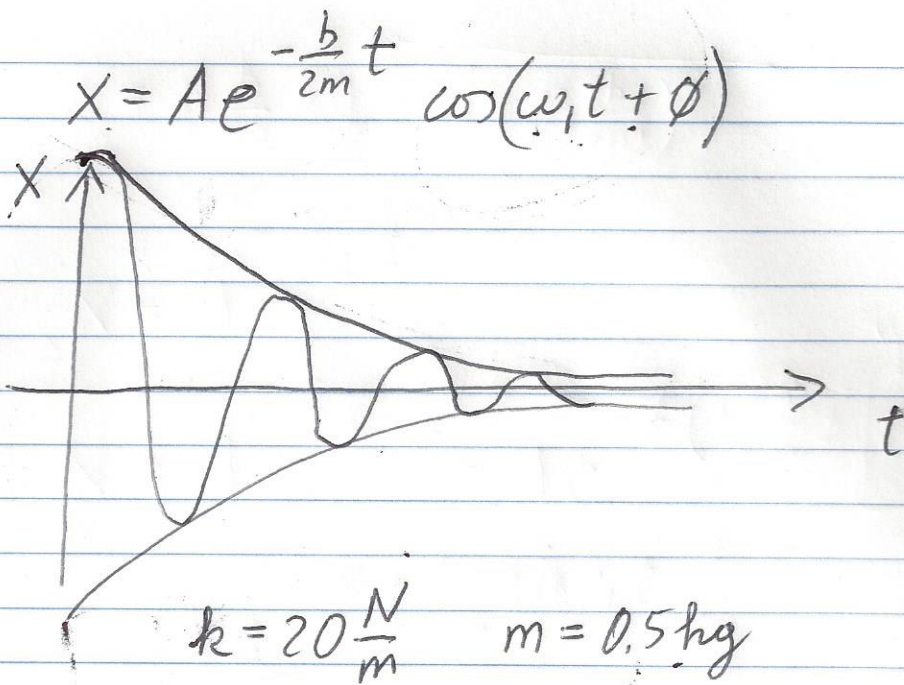 x = A e^{-\frac{b}{2m}t} cos(ω₁t + ø)
x
t
k = 20 \frac{N}{m} m = 0.5 kg